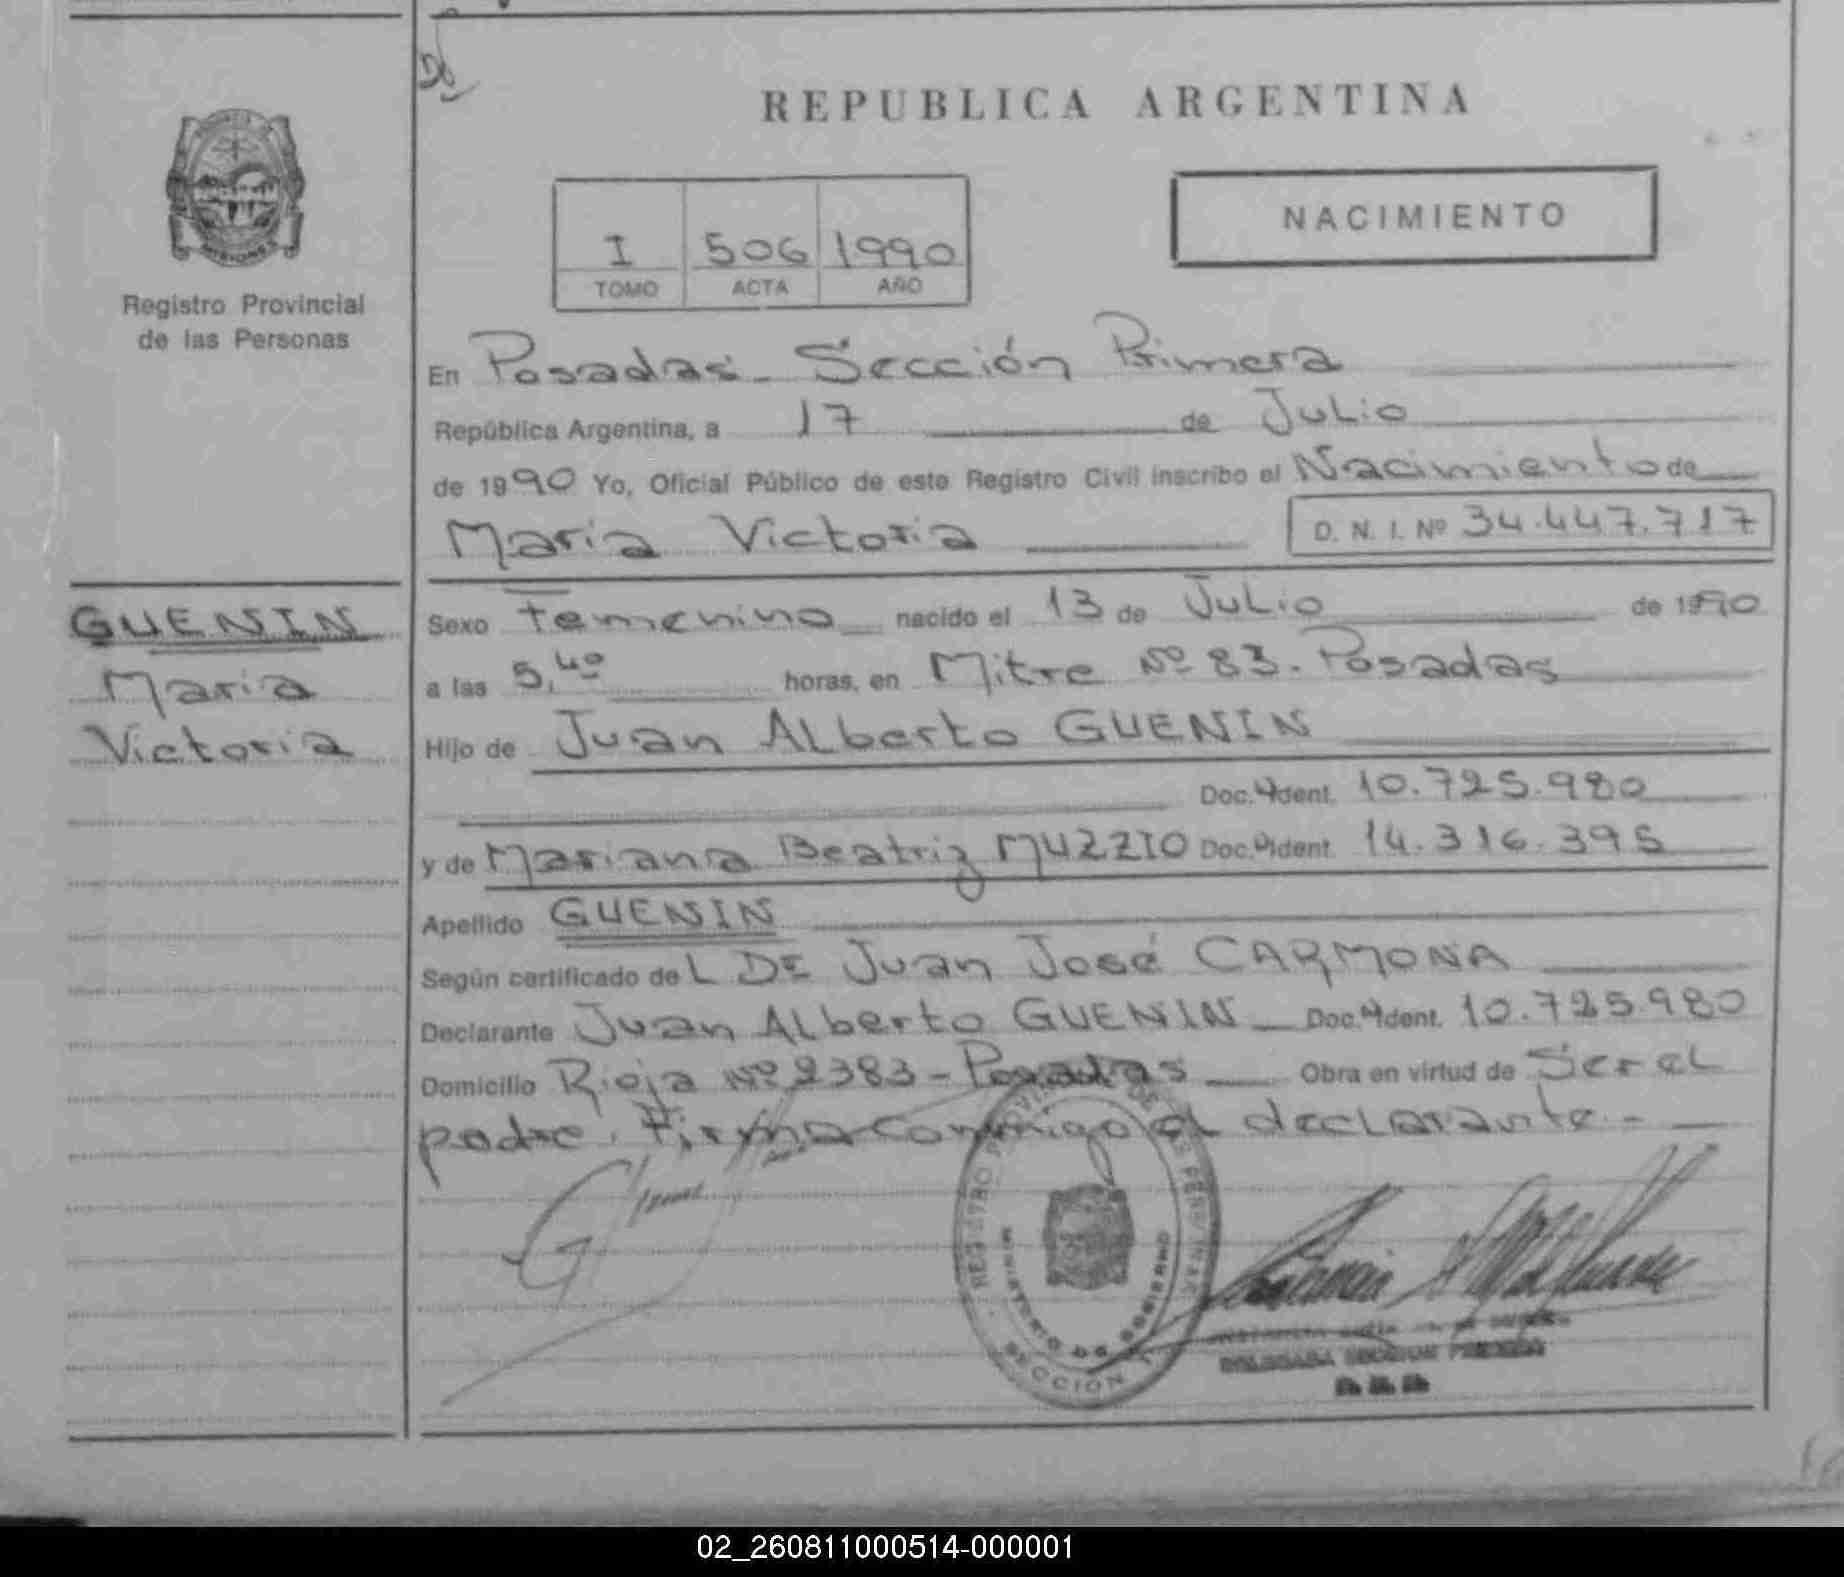 REPUBLICA ARGENTINA
NACIMIENTO
I 506 1990
TOMO ACTA AÑO
MISIONES
Registro Provincial
de las Personas
En Posadas - Sección Primera
República Argentina, a 17 de Julio
de 1990 Yo, Oficial Público de este Registro Civil inscribo el Nacimiento de
Maria Victoria D. N. I. Nº 34.447.717
GUENIN
Maria
Victoria
Sexo Femenino nacido el 13 de Julio de 1990
a las 5,40 horas, en Mitre Nº 83. Posadas
Hijo de Juan Alberto GUENIN
Doc. Ident. 10.725.980
y de Mariana Beatriz MUZZIO Doc. Ident. 14.316.395
Apellido GUENIN
Según certificado de L DE Juan José CARMONA
Declarante Juan Alberto GUENIN - Doc. Ident. 10.725.980
Domicilio Rioja Nº 2383 - Posadas Obra en virtud de Ser el
padre. Firma conmigo el declarante. -
REGISTRO PROVINCIAL DE LAS PERSONAS
MINISTERIO DE GOBIERNO
SECCION
DELEGADA SECCION PRIMERA
02_260811000514-000001